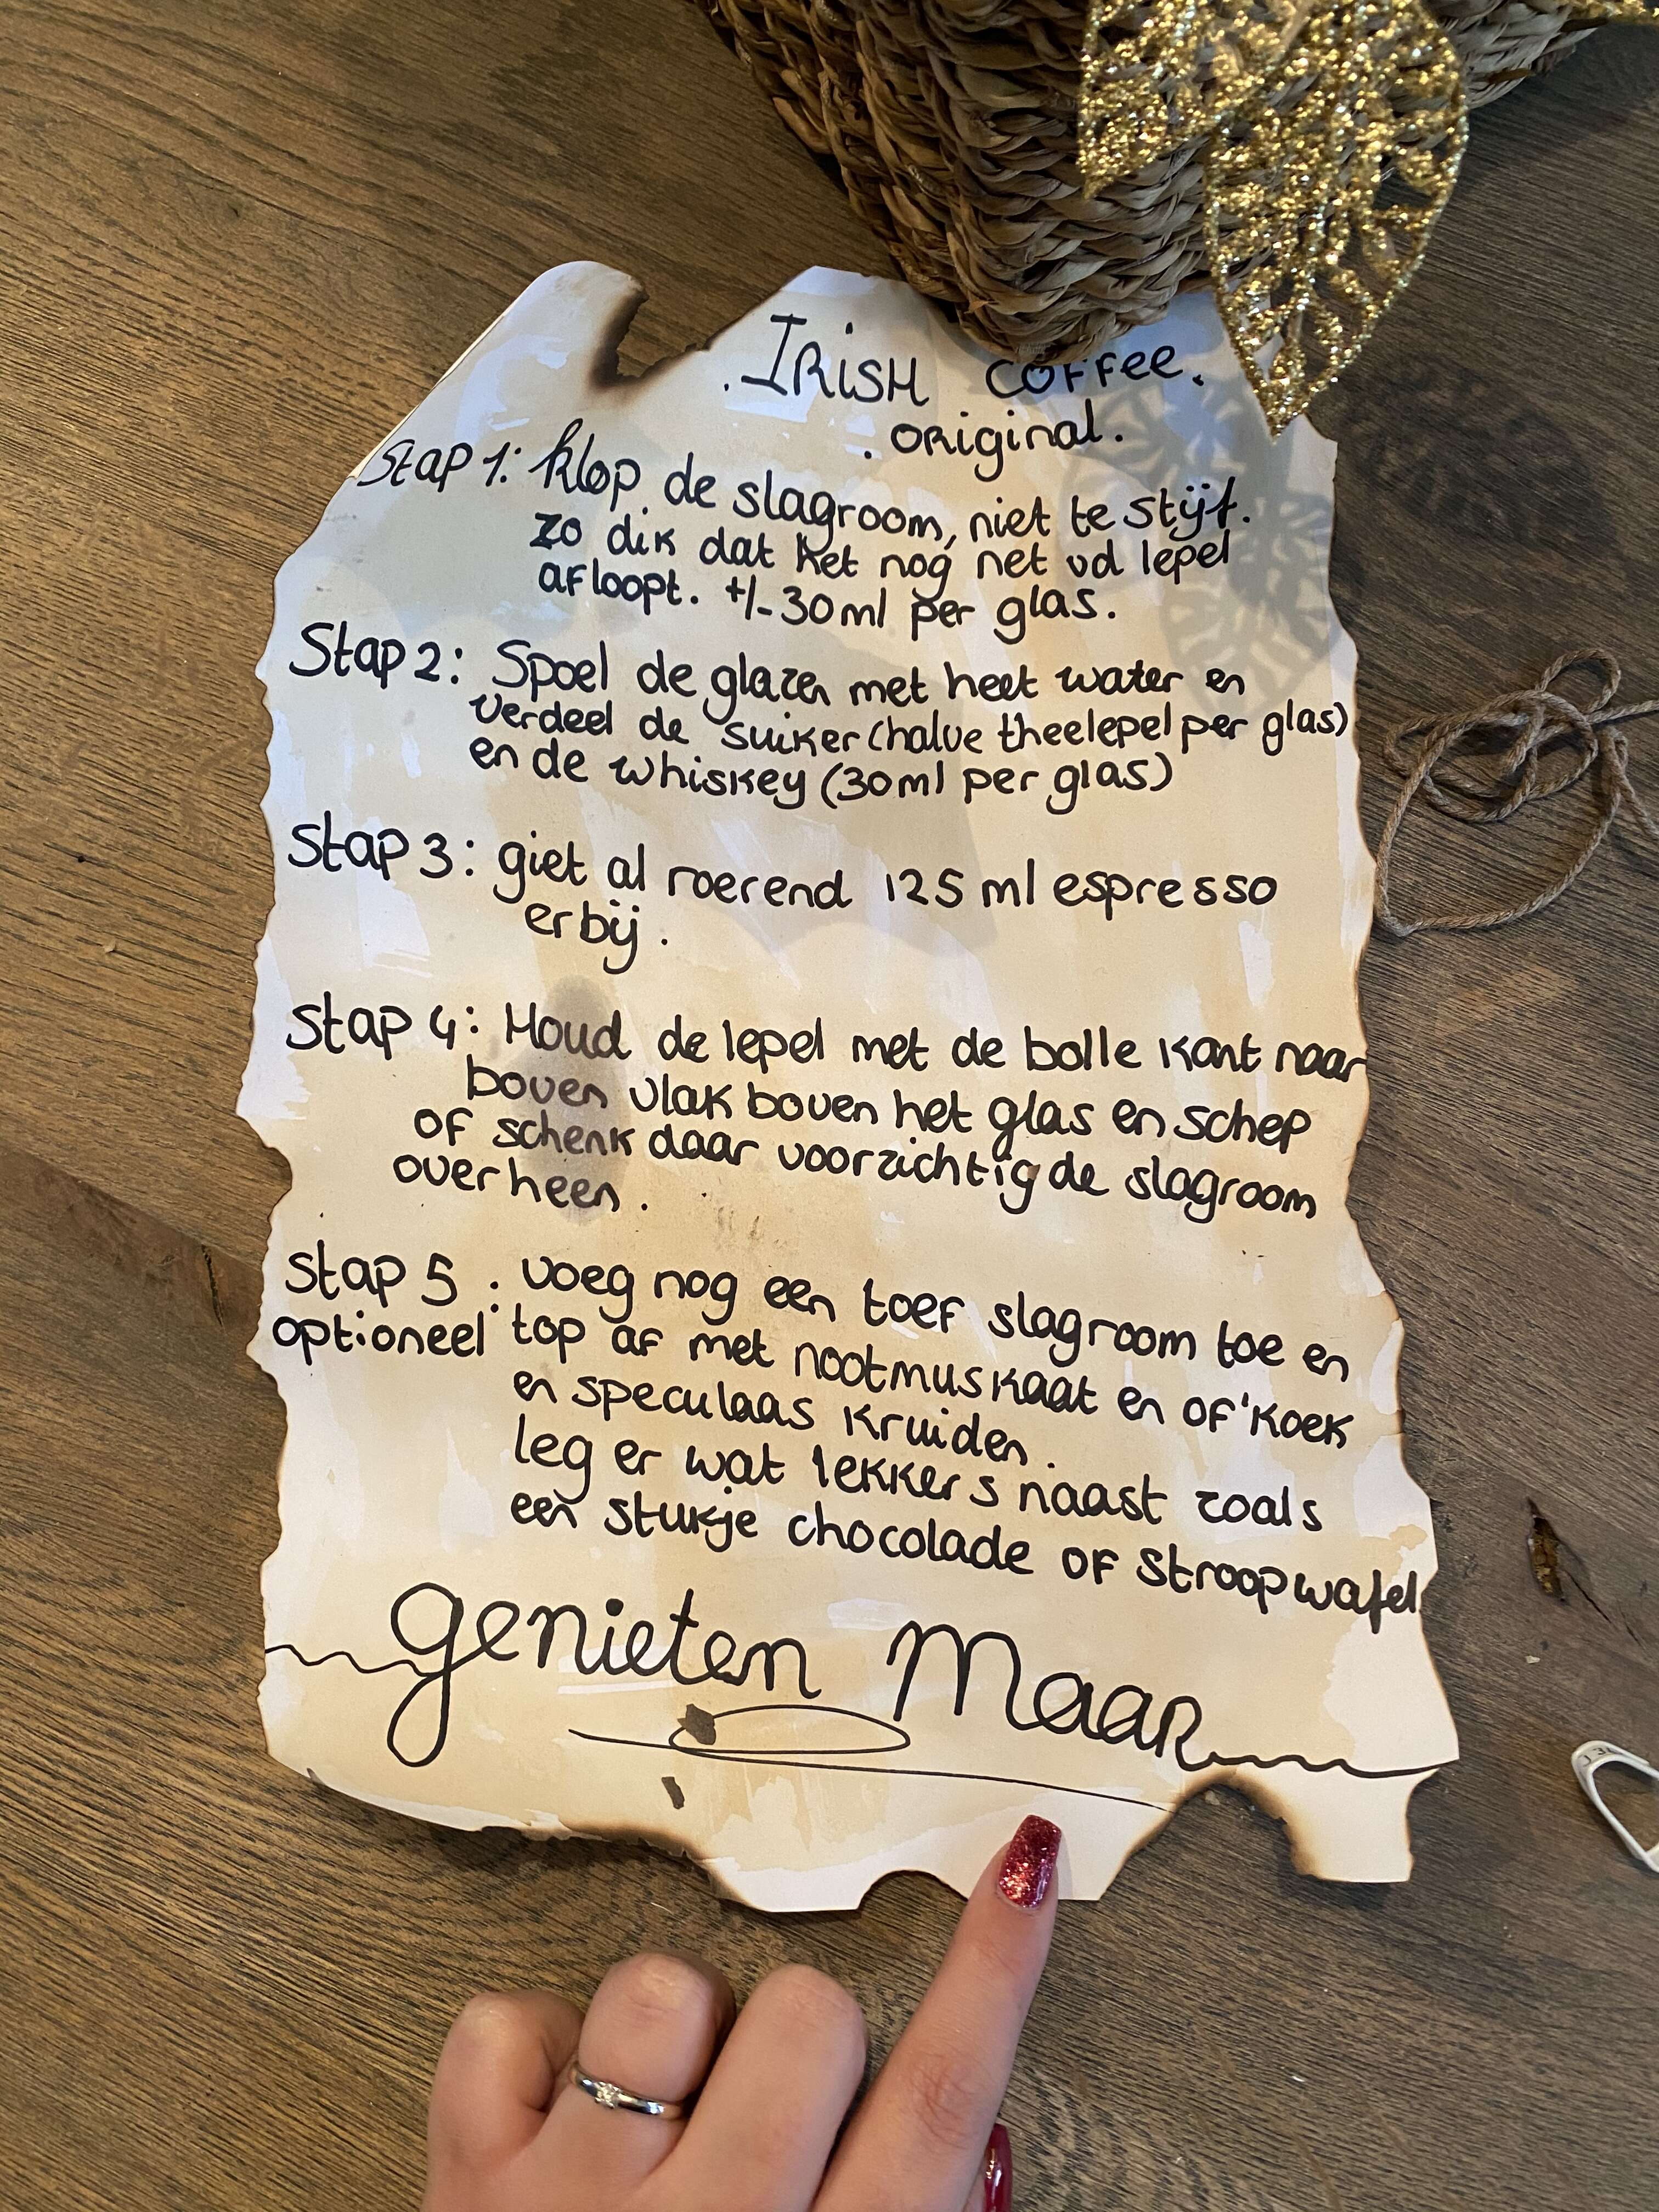 . IRISH COFFEE.
. ORiginal.
Stap 1: klop de slagroom, niet te stijf.
zo dik dat het nog net vd lepel
afloopt. +/- 30 ml per glas.
Stap 2: Spoel de glazen met heet water en
verdeel de suiker (halve theelepel per glas)
en de whiskey (30 ml per glas)
Stap 3: giet al roerend 125 ml espresso
erbij.
Stap 4: Houd de lepel met de bolle kant naar
boven vlak boven het glas en schep
of schenk daar voorzichtig de slagroom
overheen.
Stap 5: voeg nog een toef slagroom toe en
optioneel top af met nootmuskaat en of 'koek
en speculaas kruiden.
leg er wat lekkers naast zoals
een stukje chocolade of stroopwafel
genieten Maar